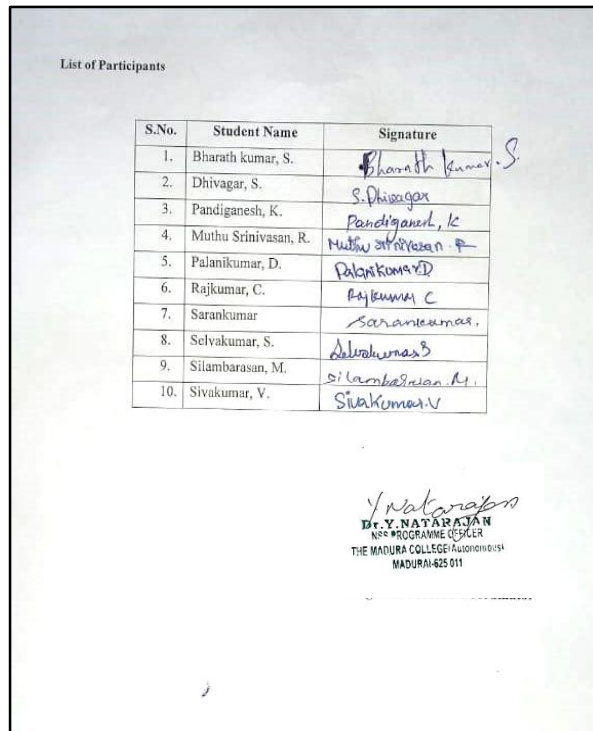 List of Participants
S.No. Student Name Signature
1. Bharath kumar, S. Bharath kumar. S.
2. Dhivagar, S. S. Dhivagar
3. Pandiganesh, K. Pandiganesh, K
4. Muthu Srinivasan, R. Muthu Srinivasan. R
5. Palanikumar, D. Palanikumar.D
6. Rajkumar, C. Rajkumar C
7. Sarankumar Sarankumar.
8. Selvakumar, S. Selvakumar S
9. Silambarasan, M. Silambarasan. M.
10. Sivakumar, V. Sivakumar.V
Y Natarajan
Dr.Y.NATARAJAN
NSS PROGRAMME OFFICER
THE MADURA COLLEGE(Autonomous)
MADURAI-625 011